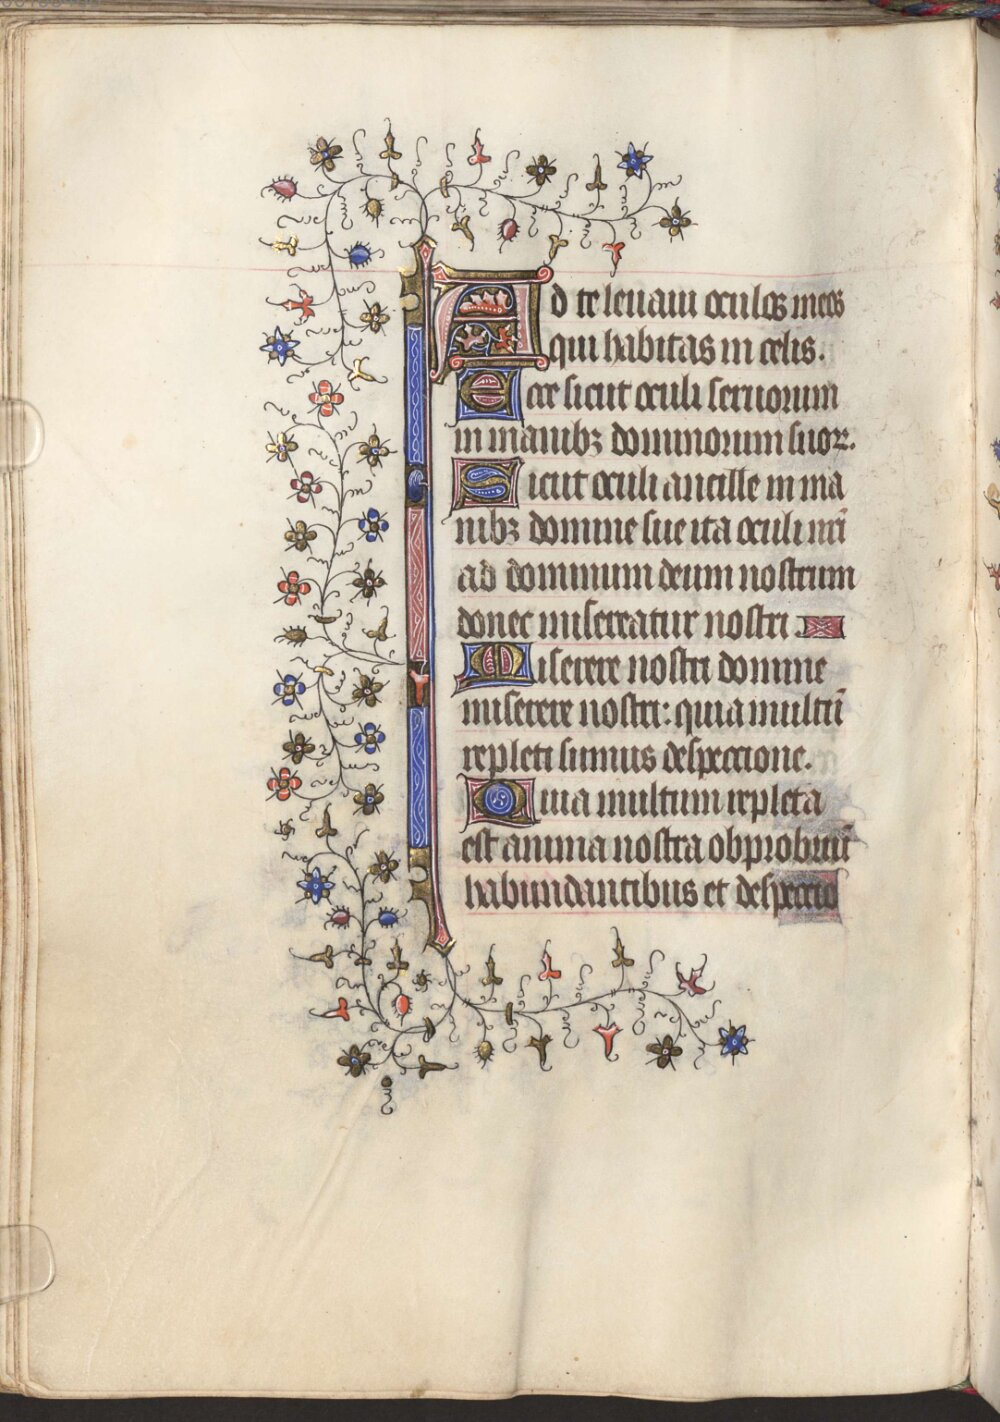 Ad te leuaui oculos meos
qui habitas in celis.
Ecce sicut oculi seruorum
in manibꝫ dominorum suoꝝ.
Sicut oculi ancille in ma
nibꝫ domine sue ita oculi nr̄i
ad dominum deum nostrum
donec misereatur nostri
Miserere nostri domine
miserere nostri: quia multū
repleti sumus despectione.
Quia multum repleta
est anima nostra obprobriū
habundantibus et despectio